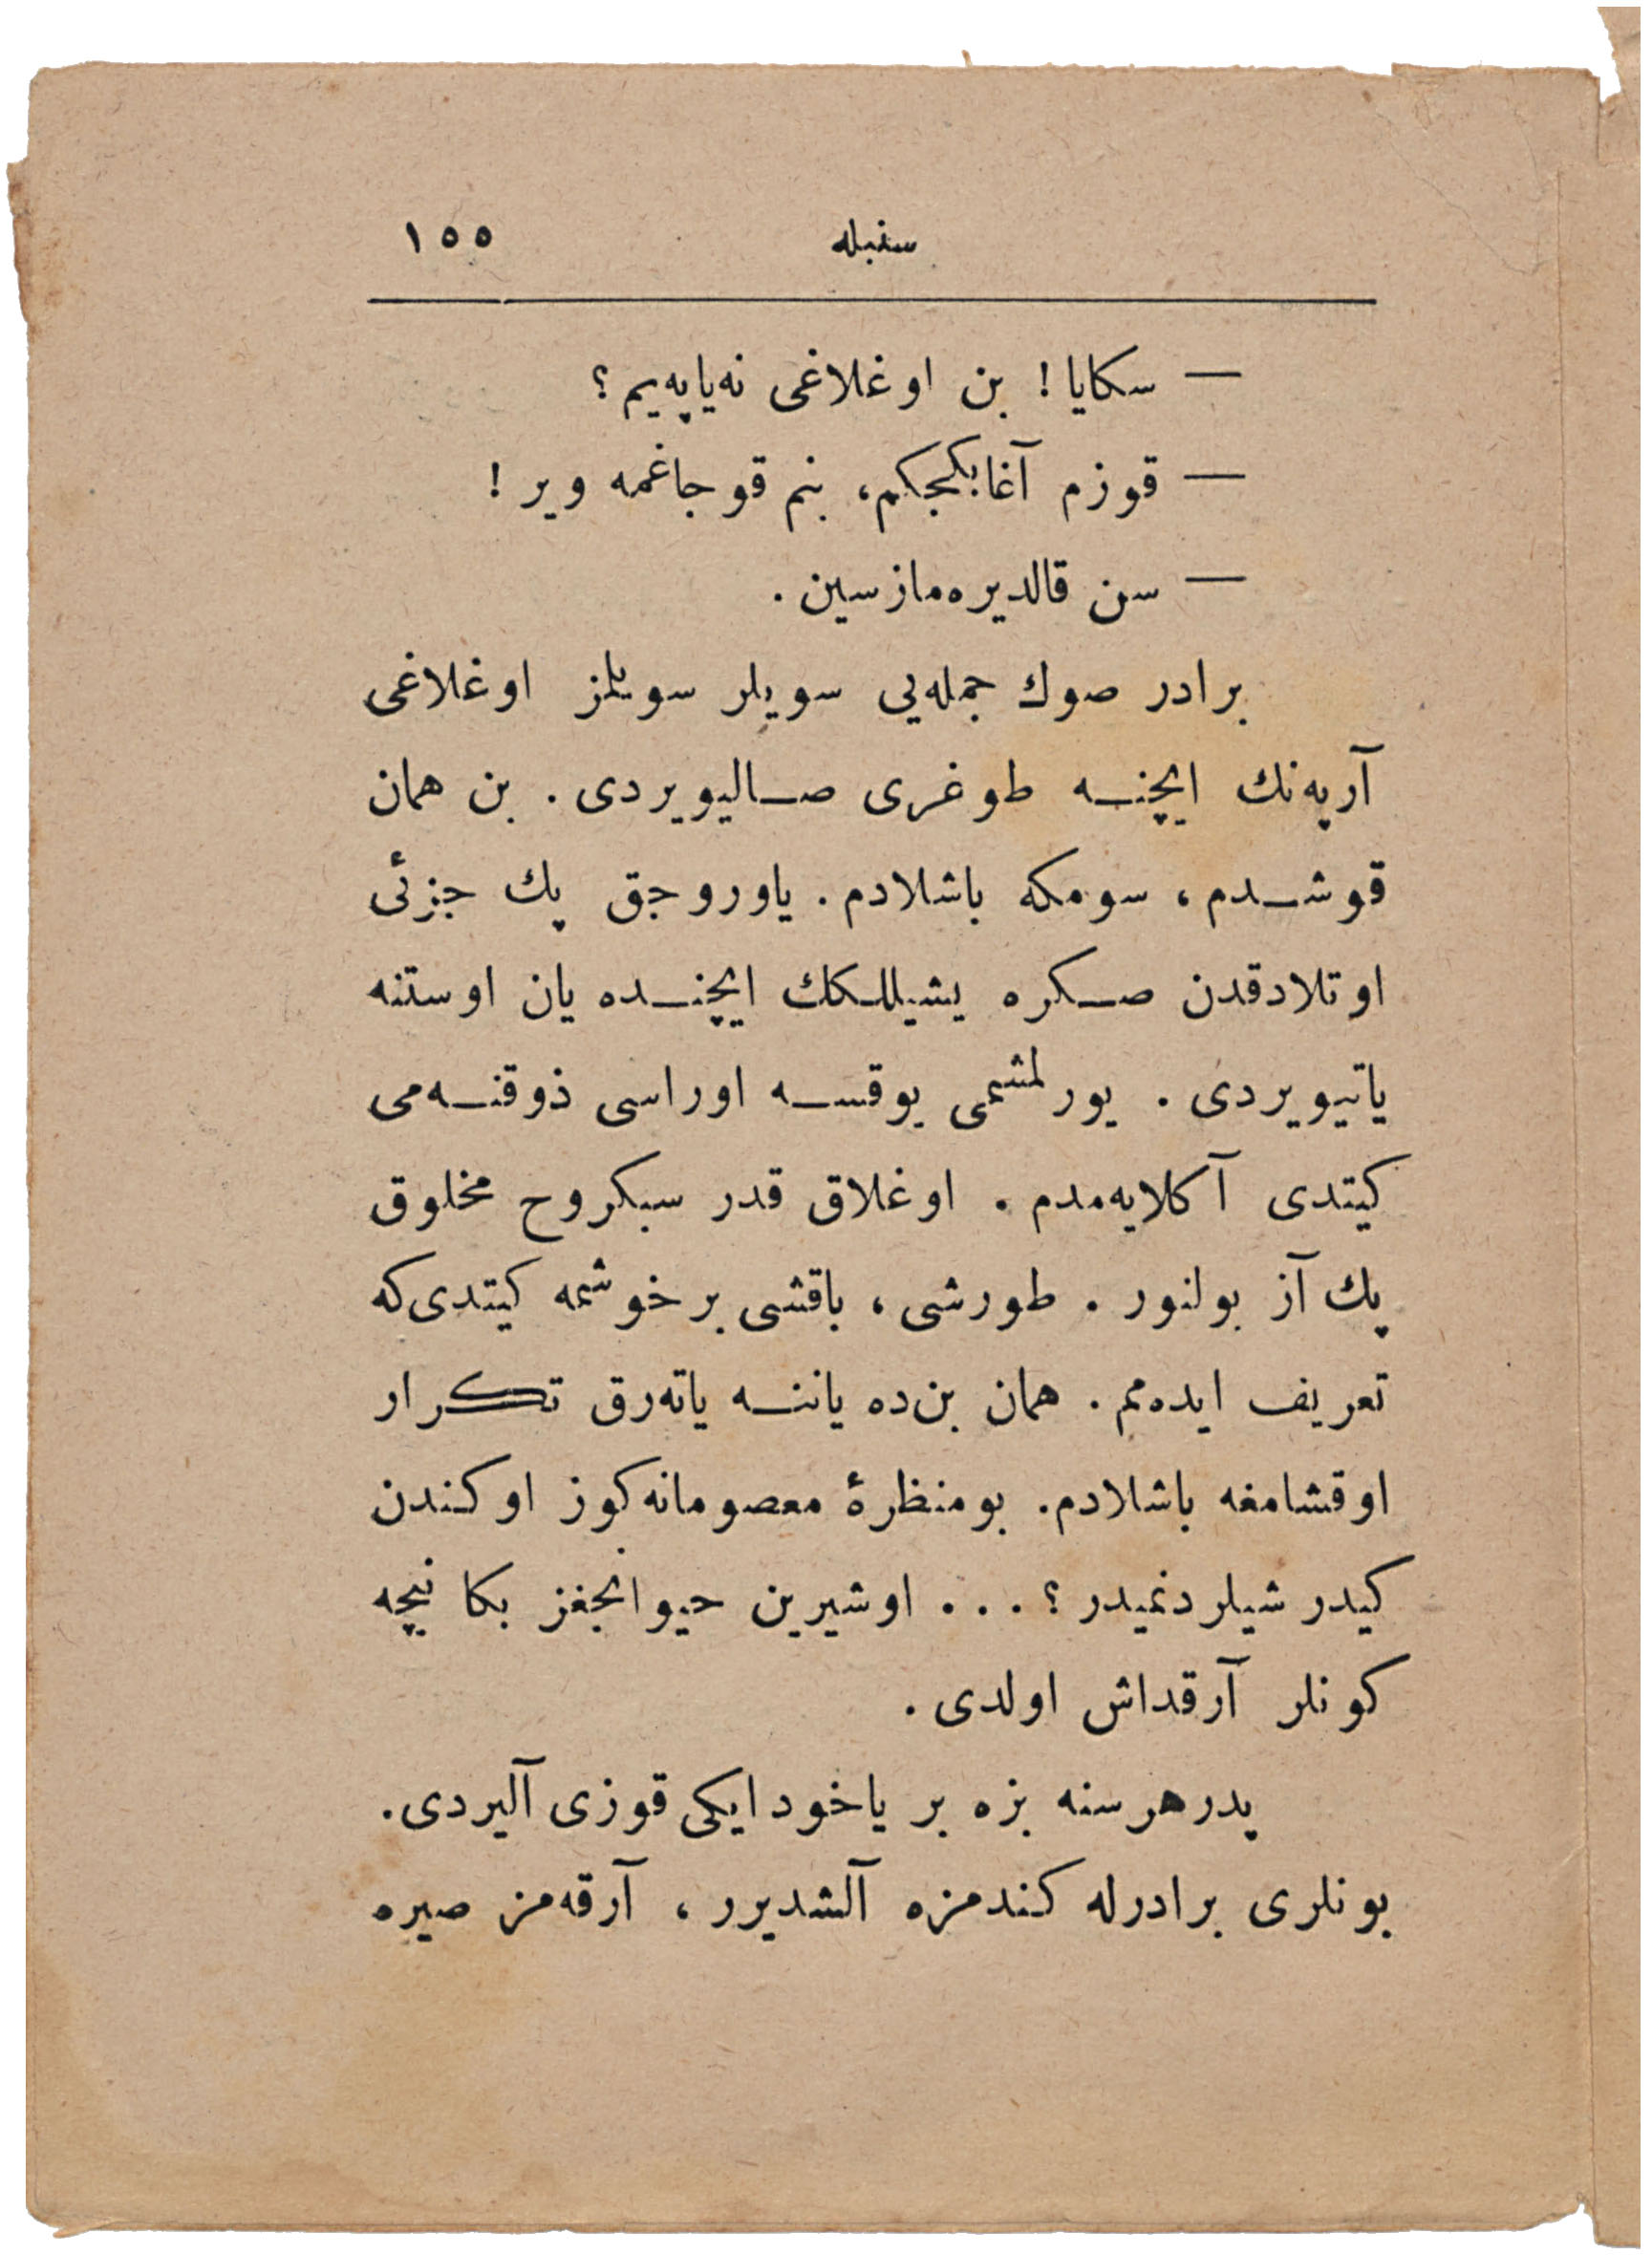 سنبله ١٥٥
— سكايا! بن اوغلاغى نه‌ياپه‌يم؟
— قوزم آغابكجكم، بنم قوجاغمه وير!
— سن قالديره‌مازسين.
برادر صوك جمله‌يى سويلر سويلمز اوغلاغى
آرپه‌نك ايچنه طوغرى صاليويردى. بن همان
قوشدم، سومكه باشلادم. ياوروجق پك جزئى
اوتلادقدن صكره يشيللكك ايچنده يان اوستنه
ياتيويردى. يورلمشمى يوقسه اوراسى ذوقنه‌مى
كيتدى آكلايه‌مدم. اوغلاق قدر سبكروح مخلوق
پك آز بولنور. طورشى، باقشى بر خوشمه كيتدى‌كه
تعريف ايده‌مم. همان بن‌ده ياننه ياته‌رق تكرار
اوقشامغه باشلادم. بومنظرهٔ معصومانه كوز اوكندن
كيدر شيلردنميدر؟... اوشيرين حيوانجغز بكا نيچه
كونلر آرقداش اولدى.
پدر هر سنه بزه بر ياخود ايكى قوزى آليردى.
بونلرى برادرله كندمزه آلشديرر، آرقه‌مز صيره